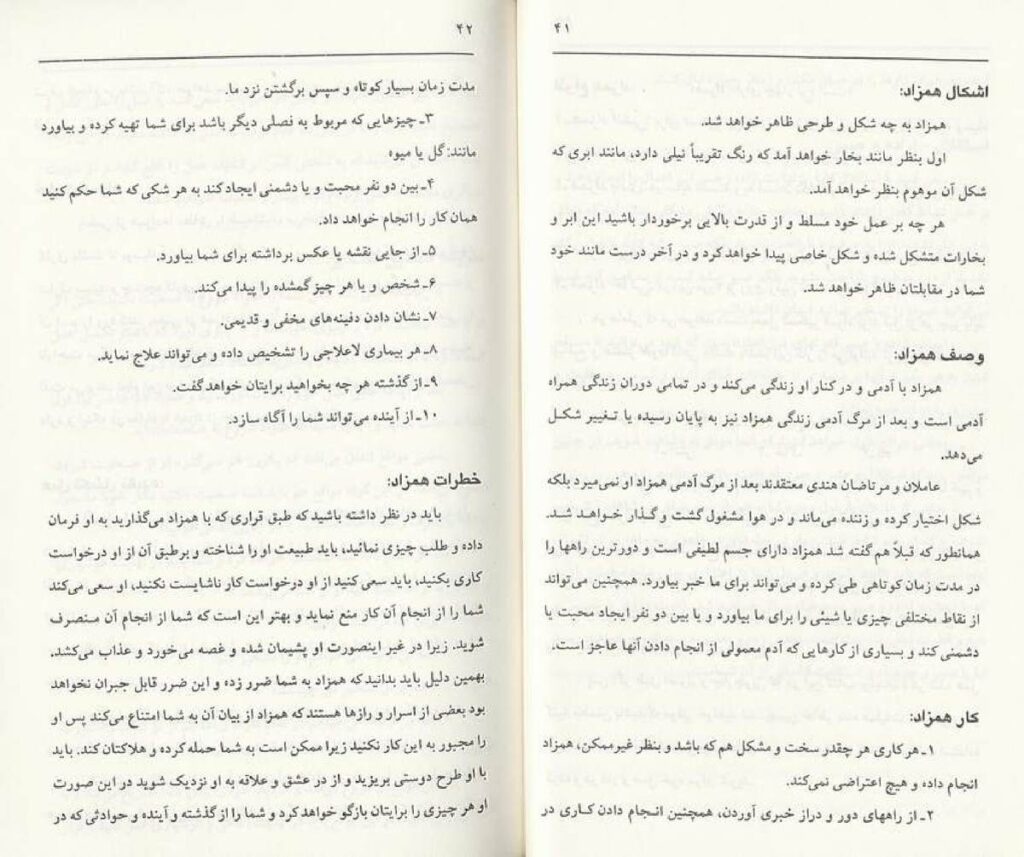 ۴۱
اشکال همزاد:
همزاد به چه شکل و طرحی ظاهر خواهد شد.
اول بنظر مانند بخار خواهد آمد که رنگ تقریباً نیلی دارد، مانند ابری که
شکل آن موهوم بنظر خواهد آمد.
هر چه بر عمل خود مسلط و از قدرت بالایی برخوردار باشید این ابر و
بخارات متشکل شده و شکل خاصی پیدا خواهد کرد و در آخر درست مانند خود
شما در مقابلتان ظاهر خواهد شد.
وصف همزاد:
همزاد با آدمی و در کنار او زندگی می‌کند و در تمامی دوران زندگی همراه
آدمی است و بعد از مرگ آدمی زندگی همزاد نیز به پایان رسیده یا تغییر شکل
می‌دهد.
عاملان و مرتاضان هندی معتقدند بعد از مرگ آدمی همزاد او نمی‌میرد بلکه
شکل اختیار کرده و زننده می‌ماند و در هوا مشغول گشت و گذار خواهد شد.
همانطور که قبلاً هم گفته شد همزاد دارای جسم لطیفی است و دورترین راهها را
در مدت زمان کوتاهی طی کرده و می‌تواند برای ما خبر بیاورد. همچنین می‌تواند
از نقاط مختلفی چیزی یا شیئی را برای ما بیاورد و یا بین دو نفر ایجاد محبت یا
دشمنی کند و بسیاری از کارهایی که آدم معمولی از انجام دادن آنها عاجز است.
کار همزاد:
۱ـ هر کاری هر چقدر سخت و مشکل هم که باشد و بنظر غیرممکن، همزاد
انجام داده و هیچ اعتراضی نمی‌کند.
۲ـ از راههای دور و دراز خبری آوردن، همچنین انجام دادن کاری در
۴۲
مدت زمان بسیار کوتاه و سپس برگشتن نزد ما.
۳ـ چیزهایی که مربوط به فصلی دیگر باشد برای شما تهیه کرده و بیاورد
مانند: گل یا میوه
۴ـ بین دو نفر محبت و یا دشمنی ایجاد کند به هر شکی که شما حکم کنید
همان کار را انجام خواهد داد.
۵ـ از جایی نقشه یا عکس برداشته برای شما بیاورد.
۶ـ شخص و یا هر چیز گمشده را پیدا می‌کند.
۷ـ نشان دادن دفینه‌های مخفی و قدیمی.
۸ـ هر بیماری لاعلاجی را تشخیص داده و می‌تواند علاج نماید.
۹ـ از گذشته هر چه بخواهید برایتان خواهد گفت.
۱۰ـ از آینده می‌تواند شما را آگاه سازد.
خطرات همزاد:
باید در نظر داشته باشید که طبق قراری که با همزاد می‌گذارید به او فرمان
داده و طلب چیزی نمائید، باید طبیعت او را شناخته و برطبق آن از او درخواست
کاری بکنید، باید سعی کنید از او درخواست کار ناشایست نکنید، او سعی می‌کند
شما را از انجام آن کار منع نماید و بهتر این است که شما از انجام آن منصرف
شوید. زیرا در غیر اینصورت او پشیمان شده و غصه می‌خورد و عذاب می‌کشد.
بهمین دلیل باید بدانید که همزاد به شما ضرر زده و این ضرر قابل جبران نخواهد
بود بعضی از اسرار و رازها هستند که همزاد از بیان آن به شما امتناع می‌کند پس او
را مجبور به این کار نکنید زیرا ممکن است به شما حمله کرده و هلاکتان کند. باید
با او طرح دوستی بریزید و از در عشق و علاقه به او نزدیک شوید در این صورت
او هر چیزی را برایتان بازگو خواهد کرد و شما را از گذشته و آینده و حوادثی که در